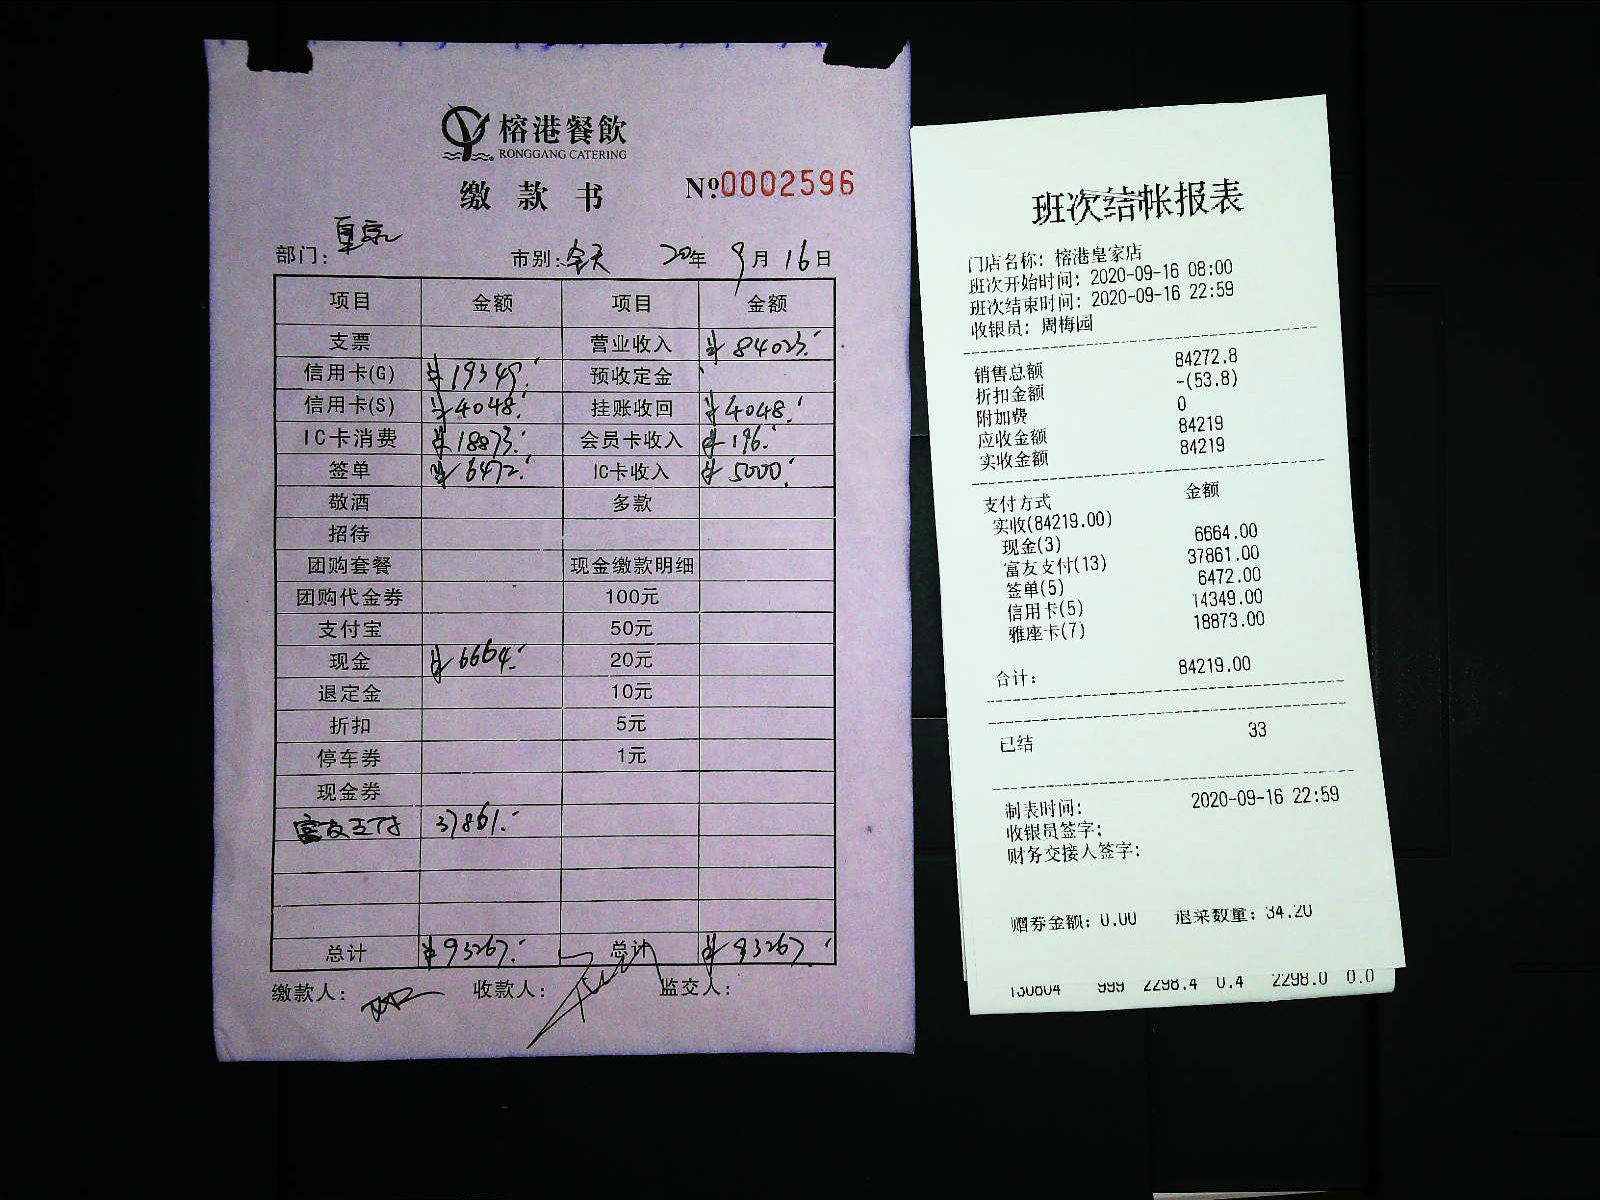 榕港餐飲
RONGGANG CATERING
缴款书 №0002596
部门：皇家 市别：全天 20年9月16日
项目 金额 项目 金额
支票 营业收入 ¥84023.-
信用卡(G) ¥19349.- 预收定金
信用卡(S) ¥4048.- 挂账收回 ¥4048.-
IC卡消费 ¥18873.- 会员卡收入 ¥196.-
签单 ¥6472.- IC卡收入 ¥5000.-
敬酒 多款
招待
团购套餐 现金缴款明细
团购代金券 100元
支付宝 50元
现金 ¥6664.- 20元
退定金 10元
折扣 5元
停车券 1元
现金券
富友支付 37861.-
总计 ¥93267.- 总计 ¥93267.-
缴款人： 收款人： 监交人：
班次结帐报表
门店名称：榕港皇家店
班次开始时间：2020-09-16 08:00
班次结束时间：2020-09-16 22:59
收银员：周梅园
销售总额 84272.8
折扣金额 -(53.8)
附加费 0
应收金额 84219
实收金额 84219
支付方式 金额
实收(84219.00)
现金(3) 6664.00
富友支付(13) 37861.00
签单(5) 6472.00
信用卡(5) 14349.00
雅座卡(7) 18873.00
合计： 84219.00
已结 33
制表时间： 2020-09-16 22:59
收银员签字：
财务交接人签字：
赠券金额：0.00 退菜数量：34.20
130804 999 2298.4 0.4 2298.0 0.0